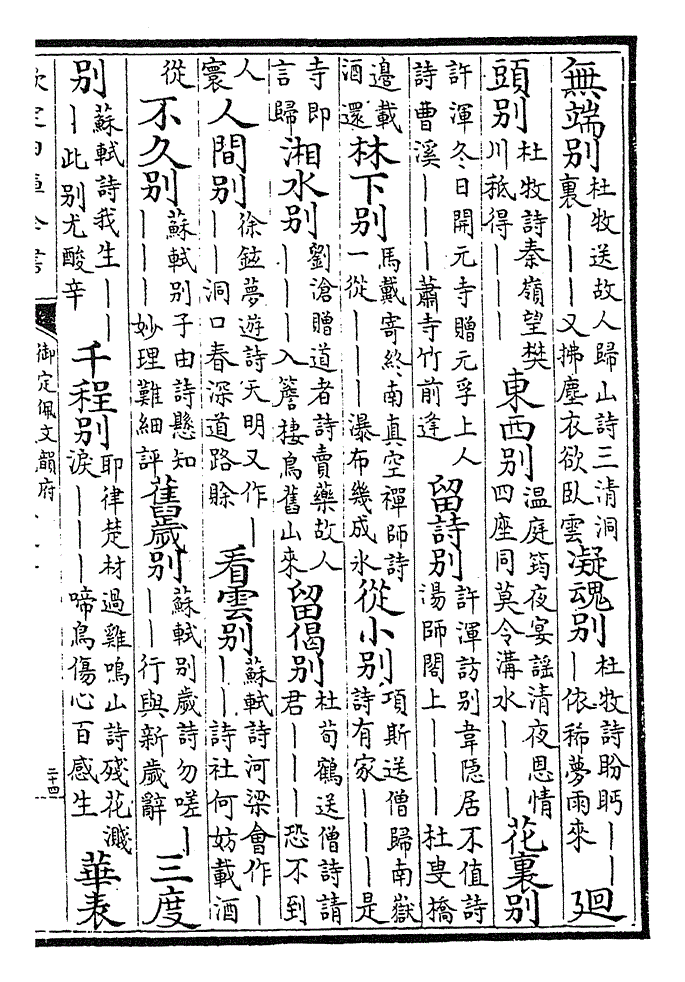 無端别 杜牧送故人歸山詩三清洞裏———又拂塵衣欲臥雲 凝魂别 杜牧詩盼眄———依稀夢雨來 廻
頭别 杜牧詩秦嶺望樊川秪得——— 東西别 温庭筠夜宴謠清夜恩情四座同莫令溝水——— 花裏别
許渾冬日開元寺贈元孚上人詩曹溪———蕭寺竹前逢 留詩别 許渾訪别韋隠居不值詩湯師閣上———杜叟橋
邊載酒還 林下别 馬戴寄終南真空禪師詩一從———瀑布幾成氷 從小别 項斯送僧歸南嶽詩有家———是
寺即言歸 湘水别 劉滄贈道者詩賣藥故人———入簷棲鳥舊山來 留偈别 杜荀鶴送僧詩請君———恐不到
人寰 人間别 徐鉉夢遊詩天明又作———洞口春深道路賖 看雲别 蘇軾詩河梁會作———詩社何妨載酒
從 不久别 蘇軾别子由詩懸知———妙理難細評 舊歳别 蘇軾别歲詩勿嗟———行與新歲辭 三度
别 蘇軾詩我生———此别尤酸辛 千程别 耶律楚材過雞鳴山詩殘花濺淚———啼鳥傷心百感生 華表
御定佩文韻府
二十四